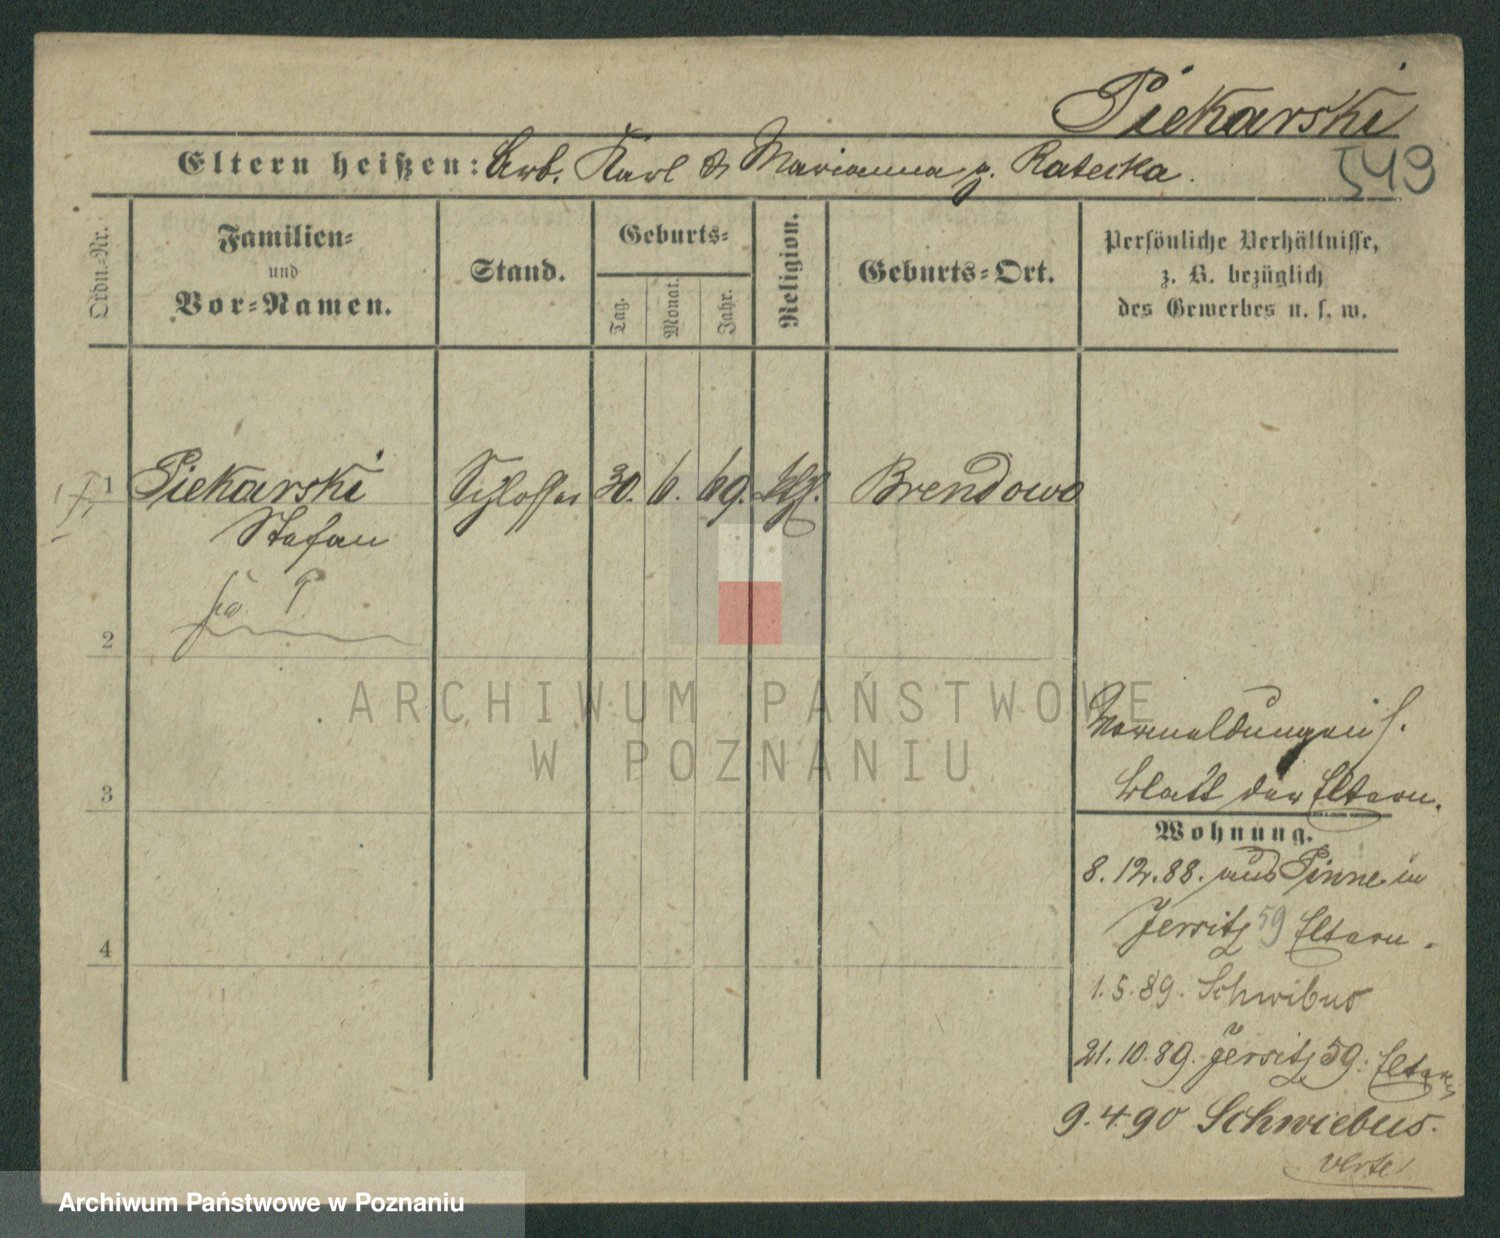 Piekarski
549
Eltern heißen: Arb. Karl & Marianna g. Ratecka.
Ordn.-Nr.
Familien-
und
Vor-Namen.
Stand.
Geburts-
Tag.
Monat.
Jahr.
Religion.
Geburts-Ort.
Persönliche Verhältnisse,
z. B. bezüglich
des Gewerbes u. s. w.
1 Piekarski Schlosser 30. 6. 69. kth. Brendowo
Stefan
2
ARCHIWUM PAŃSTWOWE
W POZNANIU
Vormeldungen s.
3
blatt der Eltern.
Wohnung.
8. 12. 88. aus Pinne in
Jersitz 59 Eltern.
4
1. 5. 89. Schwibus
21. 10. 89. Jersitz 59. Eltern
9. 4 90 Schwiebus.
verte!
Archiwum Państwowe w Poznaniu